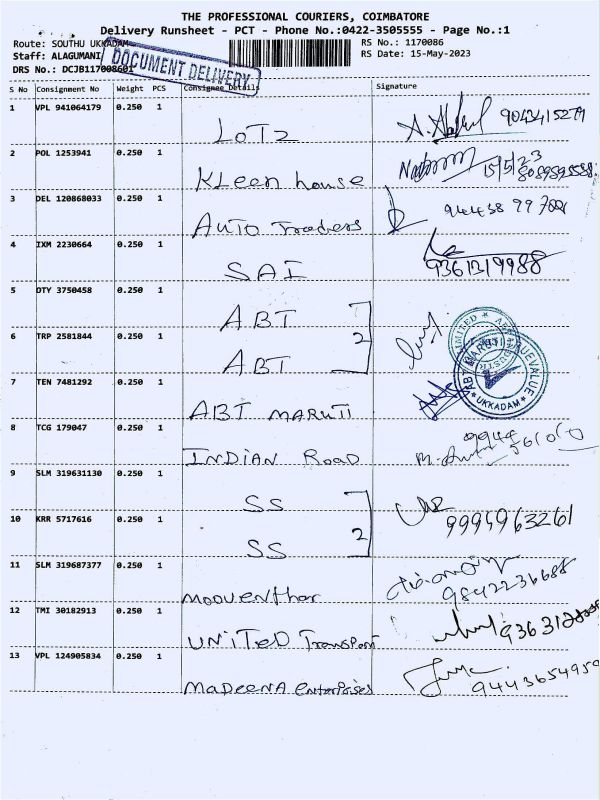 THE PROFESSIONAL COURIERS, COIMBATORE
Delivery Runsheet - PCT - Phone No.:0422-3505555 - Page No.:1
Route: SOUTHU UKKADAM
RS No.: 1170086
Staff: ALAGUMANI
RS Date: 15-May-2023
DRS No.: DCJB117008601
DOCUMENT DELIVERY
S No Consignment No Weight PCS Consignee Details Signature
1 VPL 941064179 0.250 1 LOTZ 9043415279
2 POL 1253941 0.250 1 KLeen house 15/5/23
3 DEL 120868033 0.250 1 AUTO Traders
4 IXM 2230664 0.250 1 SAI 9361319988
5 DTY 3750458 0.250 1 ABT
2
6 TRP 2581844 0.250 1 ABT
ABT MARUTI TRUEVALUE
UKKADAM
7 TEN 7481292 0.250 1 ABT MARUTI
8 TCG 179047 0.250 1 INDIAN Road
9 SLM 319631130 0.250 1 SS
2
10 KRR 5717616 0.250 1 SS
11 SLM 319687377 0.250 1 mooventhar 9842236688
12 TMI 30182913 0.250 1 UNITED Transport
13 VPL 124905834 0.250 1 MADEENA enterprises 9443654950